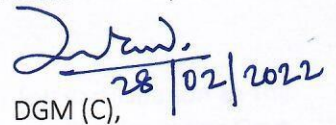 28/02/2022
DGM (C),